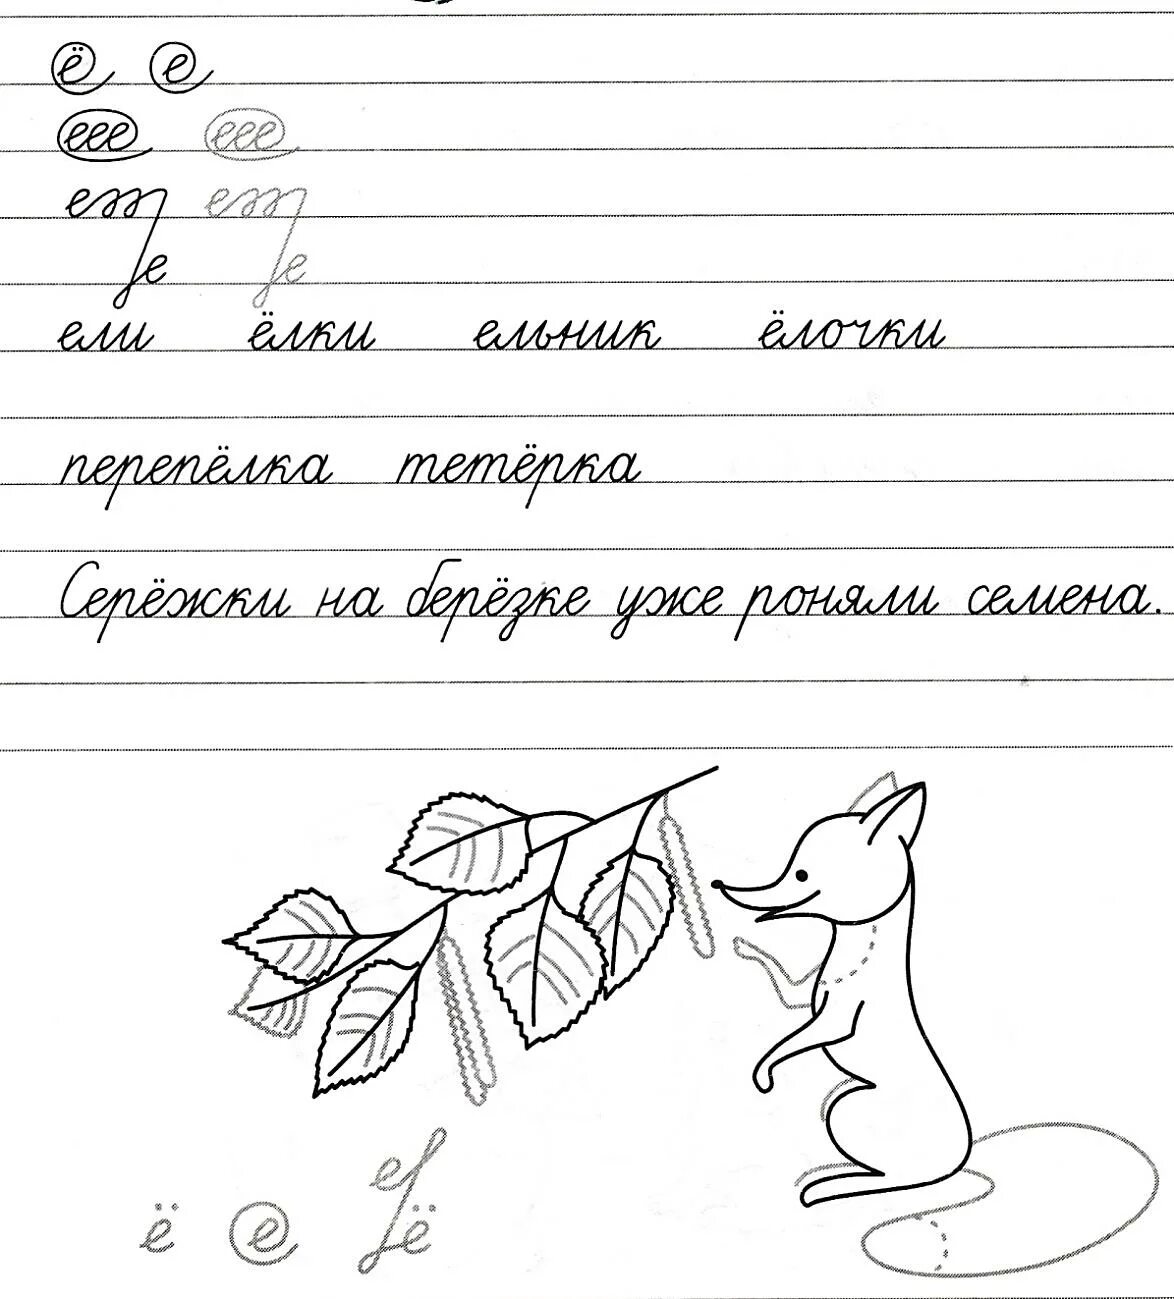 ё е
еее еее
ет ет
е е
ели ёлки ельник ёлочки
перепёлка тетёрка
Серёжки на берёзке уже роняли семена.
е
ё е ё